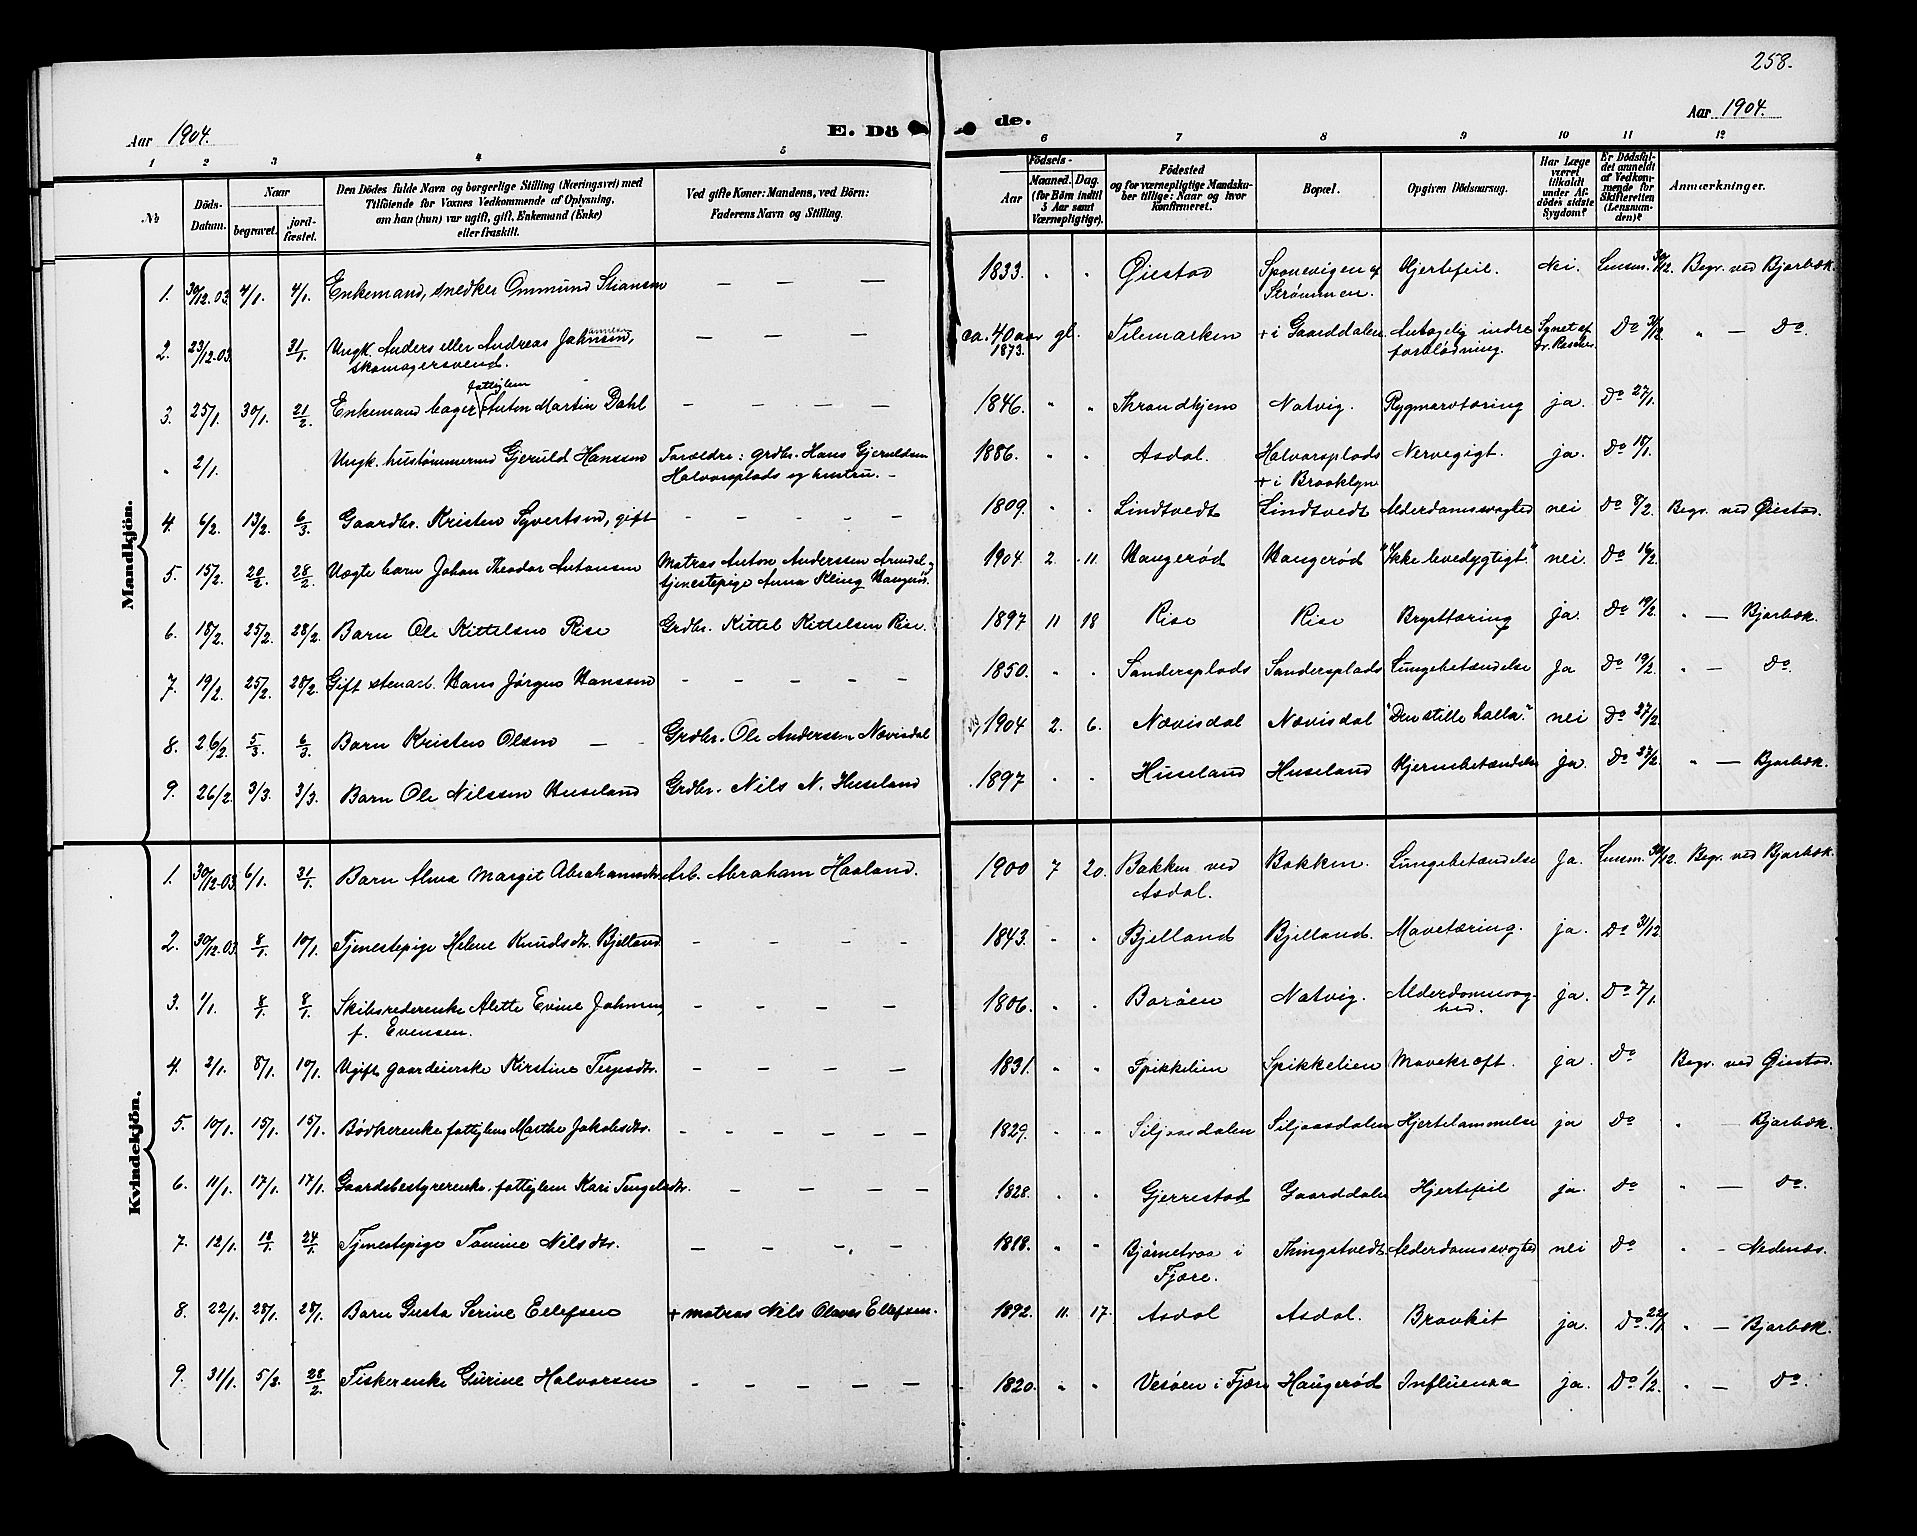 258.
Aar 1904.
E. Dö
de.
Aar 1904.
1 2 3 4 5 6 7 8 9 10 11 12
№
Döds-Datum.
Naar
begravet.
jordfæstet.
Den Dödes fulde Navn og borgerlige Stilling (Næringsvei) med
Tilföiende for Voxnes Vedkommende af Oplysning,
om han (hun) var ugift, gift, Enkemand (Enke)
eller fraskilt.
Ved gifte Koner: Mandens, ved Börn:
Faderens Navn og Stilling.
Födsels-
Aar
Maaned. Dag.
(for Börn indtil
5 Aar samt
Værnepligtige).
Födested
og for værnepligtige Mandskaber tillige: Naar og hvor
konfirmeret.
Bopæl.
Opgiven Dödsaarsag.
Har Læge været tilkaldt under Afdödes sidste Sygdom?
Er Dödsfaldet anmeldt af Vedkommende for Skifteretten (Lensmanden)?
Anmærkninger.
Mandkjön.
1. 30/12.03 4/1. 4/1. Enkemand, snedker Ommund Stiansen — — — 1833. " " Øiestad Sponevigen Strømmen. Hjertefeil. Nei. Lensm. 30/12. Begr. ved Bjorbæk.
2. 23/12.03. 31/1. Ungk. Anders eller Andreas Johnsen, skomagersvend. — — — ca. 40 aar gl. 1873. Telemarken + i Gaarddalen Antagelig indre forblødning. Synet af Dr. Do 31/12. " — Do.
3. 25/1. 30/1. 21/2. Enkemand bager fattiglem Anton Martin Dahl — — — — 1846. " " Throndhjem Natvig. Rygmarvtæring ja. Do 27/1.
" 2/1. Ungk. hustømmermd Gjeruld Hanssen Forældre: grdbr. Hans Gjeruldsen Halvorsplads og hustru. — 1886. " " Asdal. Halvorsplads + i Brooklyn Nervegigt. ja. Do 18/1.
4. 6/2. 13/2. 6/3. Gaardbr. Kristen Syvertsen, gift — — — — — 1809. " " Lindtvedt Lindtvedt Alderdomssvaghed nei Do 8/2. Begr. ved Øiestad.
5. 15/2. 20/2. 28/2. Uægte barn Johan Theodor Antonsen Matros Anton Anderssen Arendal, tjenestepige Anna Kling Haugerød. 1904 2. 11. Haugerød Haugerød "Ikke levedygtigt." nei Do 16/2.
6. 18/2. 25/2. 28/2. Barn Ole Kittelsen Rise Grdbr. Kittel Kittelsen Rise. 1897 11 18 Rise Rise Brysttæring ja. Do 19/2. " — Bjorbæk.
7. 19/2. 25/2. 28/2. Gift stenarb. Hans Jørgen Hanssen — — — — — 1850. " " Sandersplads Sandersplads Lungebetændelse Ja Do 19/2. " — Do.
8. 26/2. 5/3. 6/3. Barn Kristen Olsen — Grdbr. Ole Anderssen Nævisdal 1904 2. 6. Nævisdal Nævisdal "Den stille halla." nei Do 27/2.
9. 26/2. 3/3. 3/3. Barn Ole Nilssen Huseland Grdbr. Nils N. Huseland 1897 " " Huseland Huseland Hjernebetændelse ja. Do 27/2. " — Bjorbæk.
Kvindekjön.
1. 30/12.03. 6/1. 31/1. Barn Alma Margit Abrahamsdtr. Arb. Abraham Haaland. 1900 7 20. Bakken ved Asdal. Bakken. Lungebetændelse Ja. Lensm. 30/12. Begr. ved Bjorbæk.
2. 30/12.03. 8/1. 10/1. Tjenestepige Helene Knudsdtr. Bjelland — — — — 1843. " " Bjelland Bjelland. Mavetæring. ja. Do 31/12.
3. 1/1. 8/1. 8/1. Skibsrederenke Alette Evine Johnsen, f. Evensen. — — — — 1806. " " Borøen Natvig. Alderdomssvaghed. ja. Do 7/1.
4. 2/1. 8/1. 10/1. Ugift gaardeierske Kirstine Terjesdtr. — — — — 1831. " " Spikkelien Spikkelien Mavekræft. ja. Do Begr. ved Øiestad.
5. 10/1. 15/1. 15/1. Bødkerenke fattiglem Marthe Jakobsdtr. — — — — — — 1829. " " Siljaasdalen Siljaasdalen Hjertelammelse ja Do " — Bjorbæk.
6. 11/1. 17/1. 17/1. Gaardsbestyrerenke, fattiglem Kari Tengelsdtr. — — — — 1828. " " Gjerrestad Gaarddalen Hjertefeil ja. Do " — Do.
7. 12/1. 18/1. 24/1. Tjenestepige Tomine Nilsdtr. — — — — 1818. " " Bjørnetraa i Fjære. Thingstvedt Alderdomssvaghed nei Do " — Nedenæs.
8. 22/1. 28/1. 28/1. Barn Gusta Serine Ellefsen + matros Nils Olaves Ellefsen. 1892. 11. 17. Asdal Asdal. Bronkit ja. Do. 22/1 " — Bjorbæk.
9. 31/1. 5/2. 28/2. Fiskerenke Gurine Halvorsen — — — — — 1820. " " Vesøen i Fjære Haugerød Influensa ja. Do 1/2. " — Do.